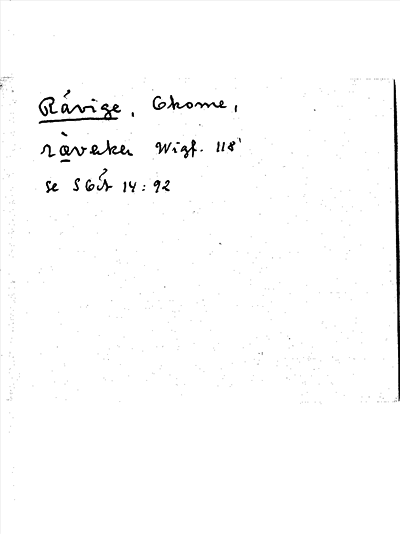 Råvige, Ekome,
räveker Wigf. 118
se SOÅ 14:92